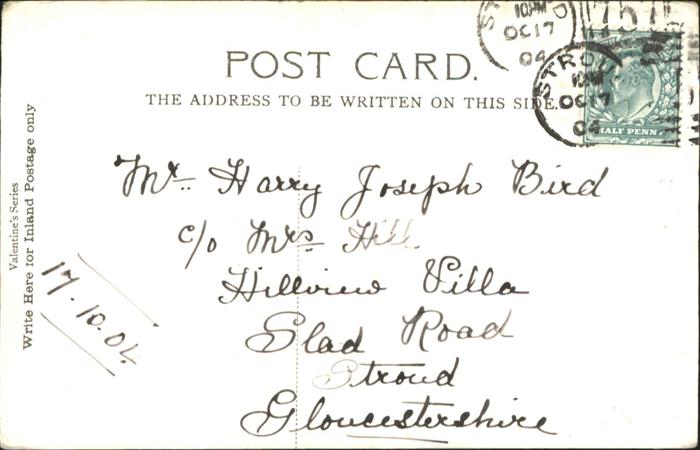 STROUD
10PM
OC 17
04
757
STROUD
10PM
OC 17
04
HALF PENNY
POST CARD.
THE ADDRESS TO BE WRITTEN ON THIS SIDE.
Valentine's Series
Write Here for Inland Postage only
17.10.04
Mr. Harry Joseph Bird
c/o Mrs Hill
Hillview Villa
Slad Road
Stroud
Gloucestershire